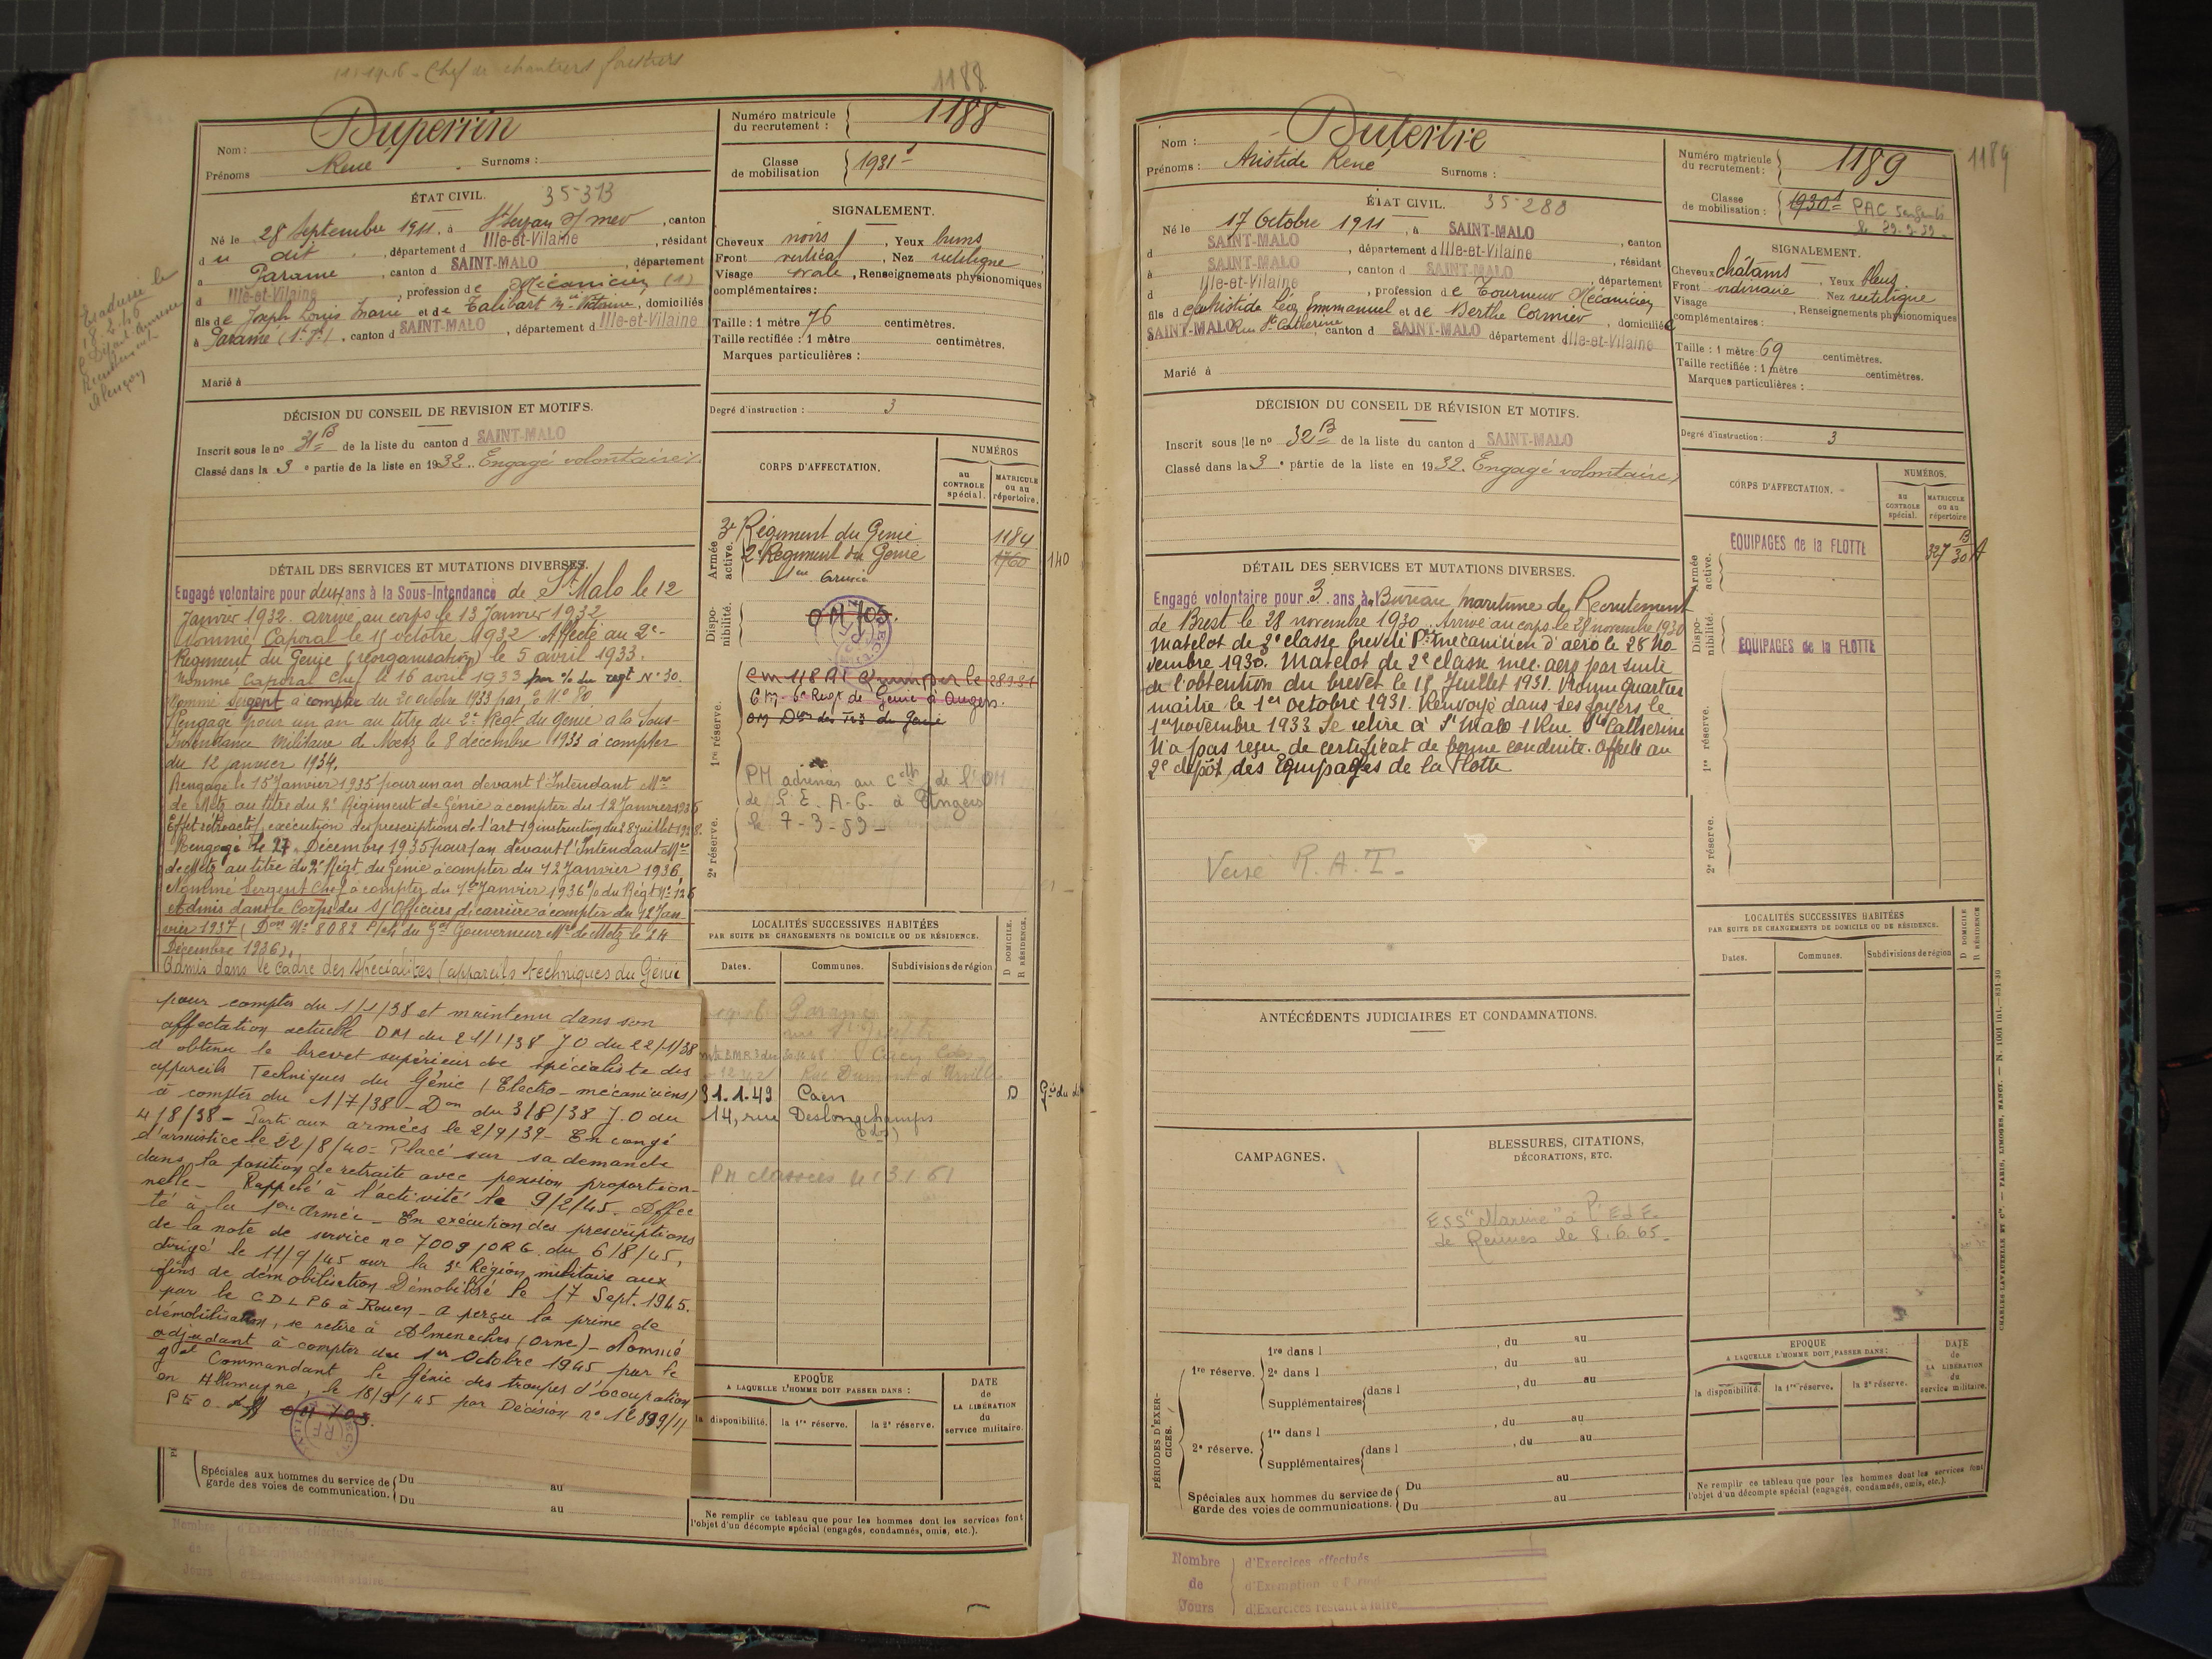 Chef de chantiers forestiers
1188
Duperrin
Nom :
René
Prénoms
Surnoms :
Numéro matricule
du recrutement :
1188
Classe
de mobilisation
1931
ÉTAT CIVIL.
35-313
Né le 28 Septembre 1911, à
, canton
d u dit , département d Ille-et-Vilaine , résidant
à Paramé , canton d SAINT-MALO , département
d Ille-et-Vilaine , profession de Mécanicien (1)
fils de Joseph Louis Marie et de Talibart , domiciliés
à Paramé , canton d SAINT-MALO , département d Ille-et-Vilaine
Marié à
SIGNALEMENT.
Cheveux noirs , Yeux bruns
Front vertical , Nez rectiligne
Visage ovale , Renseignements physionomiques
complémentaires :
Taille : 1 mètre 76 centimètres.
Taille rectifiée : 1 mètre centimètres.
Marques particulières :
Degré d'instruction : 3
le
18.2.45
Recrutement
Alençon
DÉCISION DU CONSEIL DE REVISION ET MOTIFS.
Inscrit sous le no 31 B de la liste du canton d SAINT-MALO
Classé dans la 3e partie de la liste en 1932. Engagé volontaire.
CORPS D'AFFECTATION.
NUMÉROS
au
CONTROLE
spécial.
MATRICULE
ou au
répertoire.
Armée
active.
3e Régiment du Génie
1184
2e Régiment du Génie
1760
140
Dispo-
nibilité.
OM 703.
1re réserve.
6e Regt de Génie à Angers.
PM adressée au de l'OM
de à Angers
le 7-3-59-
2e réserve.
DÉTAIL DES SERVICES ET MUTATIONS DIVERSES.
Engagé volontaire pour deux ans à la Sous-Intendance de St Malo le 12
Janvier 1932. arrivé au corps le 13 Janvier 1932
Nommé Caporal le 15 octobre 1932. Affecté au 2e
Régiment du Génie (réorganisation) le 5 avril 1933.
Nommé Caporal Chef le 16 avril 1933 par % du regt No 30.
Nommé Sergent à compter du 20 octobre 1933 par No 80
Rengagé pour un an au titre du 2e Régt du Génie à la Sous-
Intendance Militaire de Metz le 8 décembre 1933 à compter
du 12 janvier 1934.
Rengagé le 15 Janvier 1935 pour un an devant l'Intendant Mre
de Metz au titre du 2e Régiment de Génie à compter du 12 Janvier 1935
Effet rétroactif, exécution des prescriptions de l'art 19 instruction du 28 Juillet 1928.
Rengagé le 27 Décembre 1935 pour 1 an devant l'Intendant Mre
de Metz au titre du 2e Régt du Génie à compter du 12 Janvier 1936.
Nommé Sergent Chef à compter du 1er Janvier 1936 % du Régt No 126
Admis dans le Corps des S/Officiers de carrière à compter du 12 Jan-
vier 1937 (Don No 8082 du Gal Gouverneur Mre de Metz le 24
Décembre 1936).
Admis dans le cadre des spécialités (appareils techniques du Génie
pour compter du 1/1/38 et maintenu dans son
affectation actuelle DM du 21/1/38 JO du 22/1/38
a obtenu le brevet supérieur de spécialiste des
appareils Techniques du Génie (Electro-mécaniciens)
à compter du 1/7/38 - Don du 3/8/38 J.O du
4/8/38 - Parti aux armées le 2/9/39 - En congé
d'armistice le 22/8/40 - Placé sur sa demande
dans la position de retraite avec pension proportion-
nelle - Rappelé à l'activité le 9/2/45. Affec
té à la 1ere Armée - En exécution des prescriptions
de la note de service no 7009/ORG. du 6/8/45,
dirigé le 11/9/45 sur la 3e Région militaire aux
fins de démobilisation Démobilisé le 17 Sept. 1945.
par le CDLPG à Rouen - a perçu la prime de
démobilisation, se retire à Almeneches (Orne) - Nommé
adjudant à compter du 1er Octobre 1945 par le
gal Commandant le Génie des troupes d'occupation
en Allemagne, le 18/9/45 par Décision no
OM 703.
LOCALITÉS SUCCESSIVES HABITÉES
PAR SUITE DE CHANGEMENTS DE DOMICILE OU DE RÉSIDENCE.
D DOMICILE.
R RÉSIDENCE.
Dates.
Communes.
Subdivisions de région
Paramé
Caen
Rue Dumont d'Urville
31.1.49 Caen D
14, rue Deslongchamps
PM classées le 13.1.61
EPOQUE
A LAQUELLE L'HOMME DOIT PASSER DANS :
la disponibilité.
la 1re réserve.
la 2e réserve.
DATE
de
LA LIBÉRATION
du
service militaire.
Spéciales aux hommes du service de
garde des voies de communication.
Du au
Du au
Ne remplir ce tableau que pour les hommes dont les services font
l'objet d'un décompte spécial (engagés, condamnés, omis, etc.).
Nombre
de
Jours
d'Exercices effectués
d'Exercices restant à faire
Dutertre
Nom :
Prénoms : Aristide René
Surnoms :
Numéro matricule
du recrutement :
1189
1189
Classe
de mobilisation :
1930
PAC 5 enfants
ÉTAT CIVIL.
35-280
Né le 17 Octobre 1911 , à SAINT-MALO
d SAINT-MALO , département d Ille-et-Vilaine , canton
à SAINT-MALO , canton d SAINT-MALO , résidant
d Ille-et-Vilaine , profession de Tourneur Mécanicien , département
fils de Aristide Léon Emmanuel et de Berthe Cormier , domiciliés
SAINT-MALO Rue Ste Catherine , canton d SAINT-MALO département d Ille-et-Vilaine
Marié à
SIGNALEMENT.
Cheveux châtains , Yeux bleus.
Front ordinaire Nez rectiligne
Visage , Renseignements physionomiques
complémentaires :
Taille : 1 mètre 69 centimètres.
Taille rectifiée : 1 mètre centimètres.
Marques particulières :
Degré d'instruction : 3
DÉCISION DU CONSEIL DE RÉVISION ET MOTIFS.
Inscrit sous le no 32 B de la liste du canton d SAINT-MALO
Classé dans la 3e partie de la liste en 1932. Engagé volontaire
CORPS D'AFFECTATION.
NUMÉROS.
au
CONTROLE
spécial.
MATRICULE
ou au
répertoire
Armée
active.
EQUIPAGES de la FLOTTE
327 B
30
Dispo-
nibilité.
EQUIPAGES de la FLOTTE
1re réserve.
2e réserve.
DÉTAIL DES SERVICES ET MUTATIONS DIVERSES.
Engagé volontaire pour 3 ans à Bureau maritime de Recrutement
de Brest le 28 novembre 1930. Arrivé au corps le 28 novembre 1930
Matelot de 3e classe breveté Pre mécanicien d'aéro le 28 No-
vembre 1930. Matelot de 2e classe mec. aéro par suite
de l'obtention du brevet le 15 Juillet 1931. Promu Quartier
maître le 1er octobre 1931. Renvoyé dans ses foyers le
1er novembre 1933 Se retire à St Malo 1 Rue Ste Catherine
N'a pas reçu de certificat de bonne conduite. Affecté au
2e dépôt des Equipages de la Flotte
Versé R.A.T.
ANTÉCÉDENTS JUDICIAIRES ET CONDAMNATIONS.
CAMPAGNES.
BLESSURES, CITATIONS,
DÉCORATIONS, ETC.
ESS "Marine" à l'
de Rennes le 8.6.65-
LOCALITÉS SUCCESSIVES HABITÉES
PAR SUITE DE CHANGEMENTS DE DOMICILE OU DE RÉSIDENCE.
D DOMICILE
R RÉSIDENCE
Dates.
Communes.
Subdivisions de région
PÉRIODES D'EXER-
CICES.
1re réserve.
1re dans l , du au
2e dans l , du au
Supplémentaires
dans l , du au
2e réserve.
1re dans l , du au
Supplémentaires
dans l , du au
Spéciales aux hommes du service de
garde des voies de communications.
Du au
Du au
EPOQUE
A LAQUELLE L'HOMME DOIT PASSER DANS :
la disponibilité.
la 1re réserve.
la 2e réserve.
DATE
de
LA LIBÉRATION
du
service militaire.
Ne remplir ce tableau que pour les hommes dont les services font
l'objet d'un décompte spécial (engagés, condamnés, omis, etc.).
CHARLES-LAVAUZELLE ET Cie. — PARIS, LIMOGES, NANCY. — N. 1001 int.—831-30
Nombre
de
Jours
d'Exercices effectués
d'Exemption
d'Exercices restant à faire